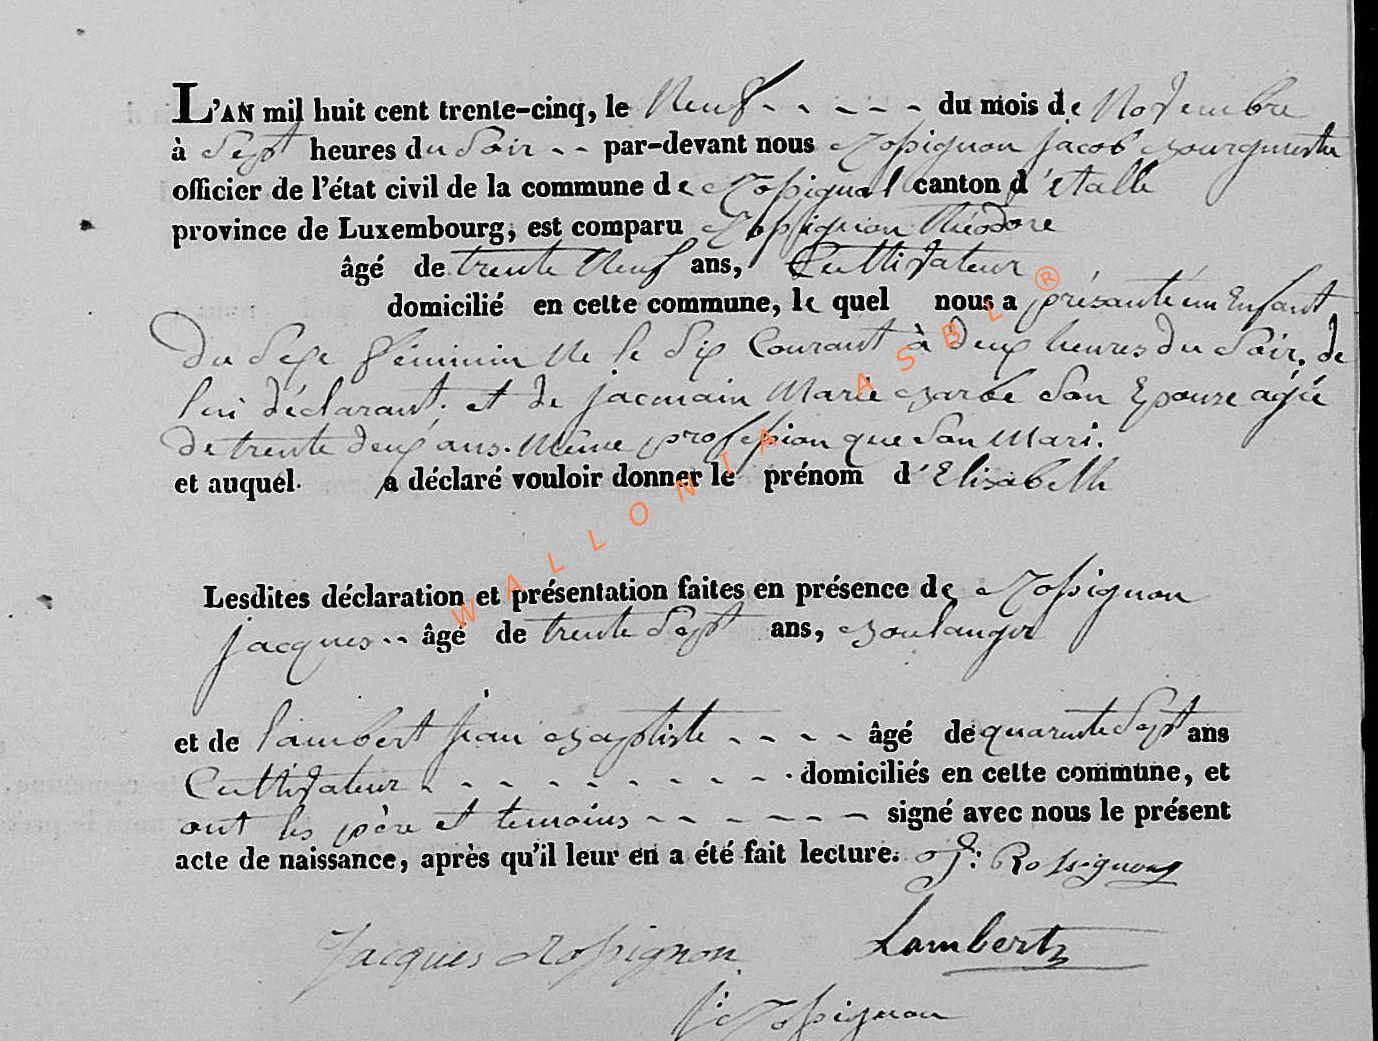 L'AN mil huit cent trente-cinq, le Neuf - - - - - du mois de Novembre
à Sept heures du Soir - - par-devant nous Rossignon Jacob Bourgmestre
officier de l'état civil de la commune de Rossignol canton d'Etalle
province de Luxembourg, est comparu Rossignon Théodore
âgé de trente Neuf ans, Cultivateur
domicilié en cette commune, le quel nous a présenté un Enfant
Du Sexe féminin Né le Six Courant à deux heures du Soir, de
lui déclarant. et de Jacmain Marie Barbe Son Epouse agée
de trente deux ans. Même profession que Son Mari.
et auquel a déclaré vouloir donner le prénom d'Elisabeth
Lesdites déclaration et présentation faites en présence de Rossignon
Jacques - - âgé de trente Sept ans, Boulanger
et de Lambert Jean Baptiste - - - - âgé de quarente Sept ans
Cultivateur - - - - - - - - - domiciliés en cette commune, et
ont les père et temoins - - - - - - signé avec nous le présent
acte de naissance, après qu'il leur en a été fait lecture. Rossignon
Jacques Rossignon Lambert
J: Rossignon
WALLONIA ASBL ®